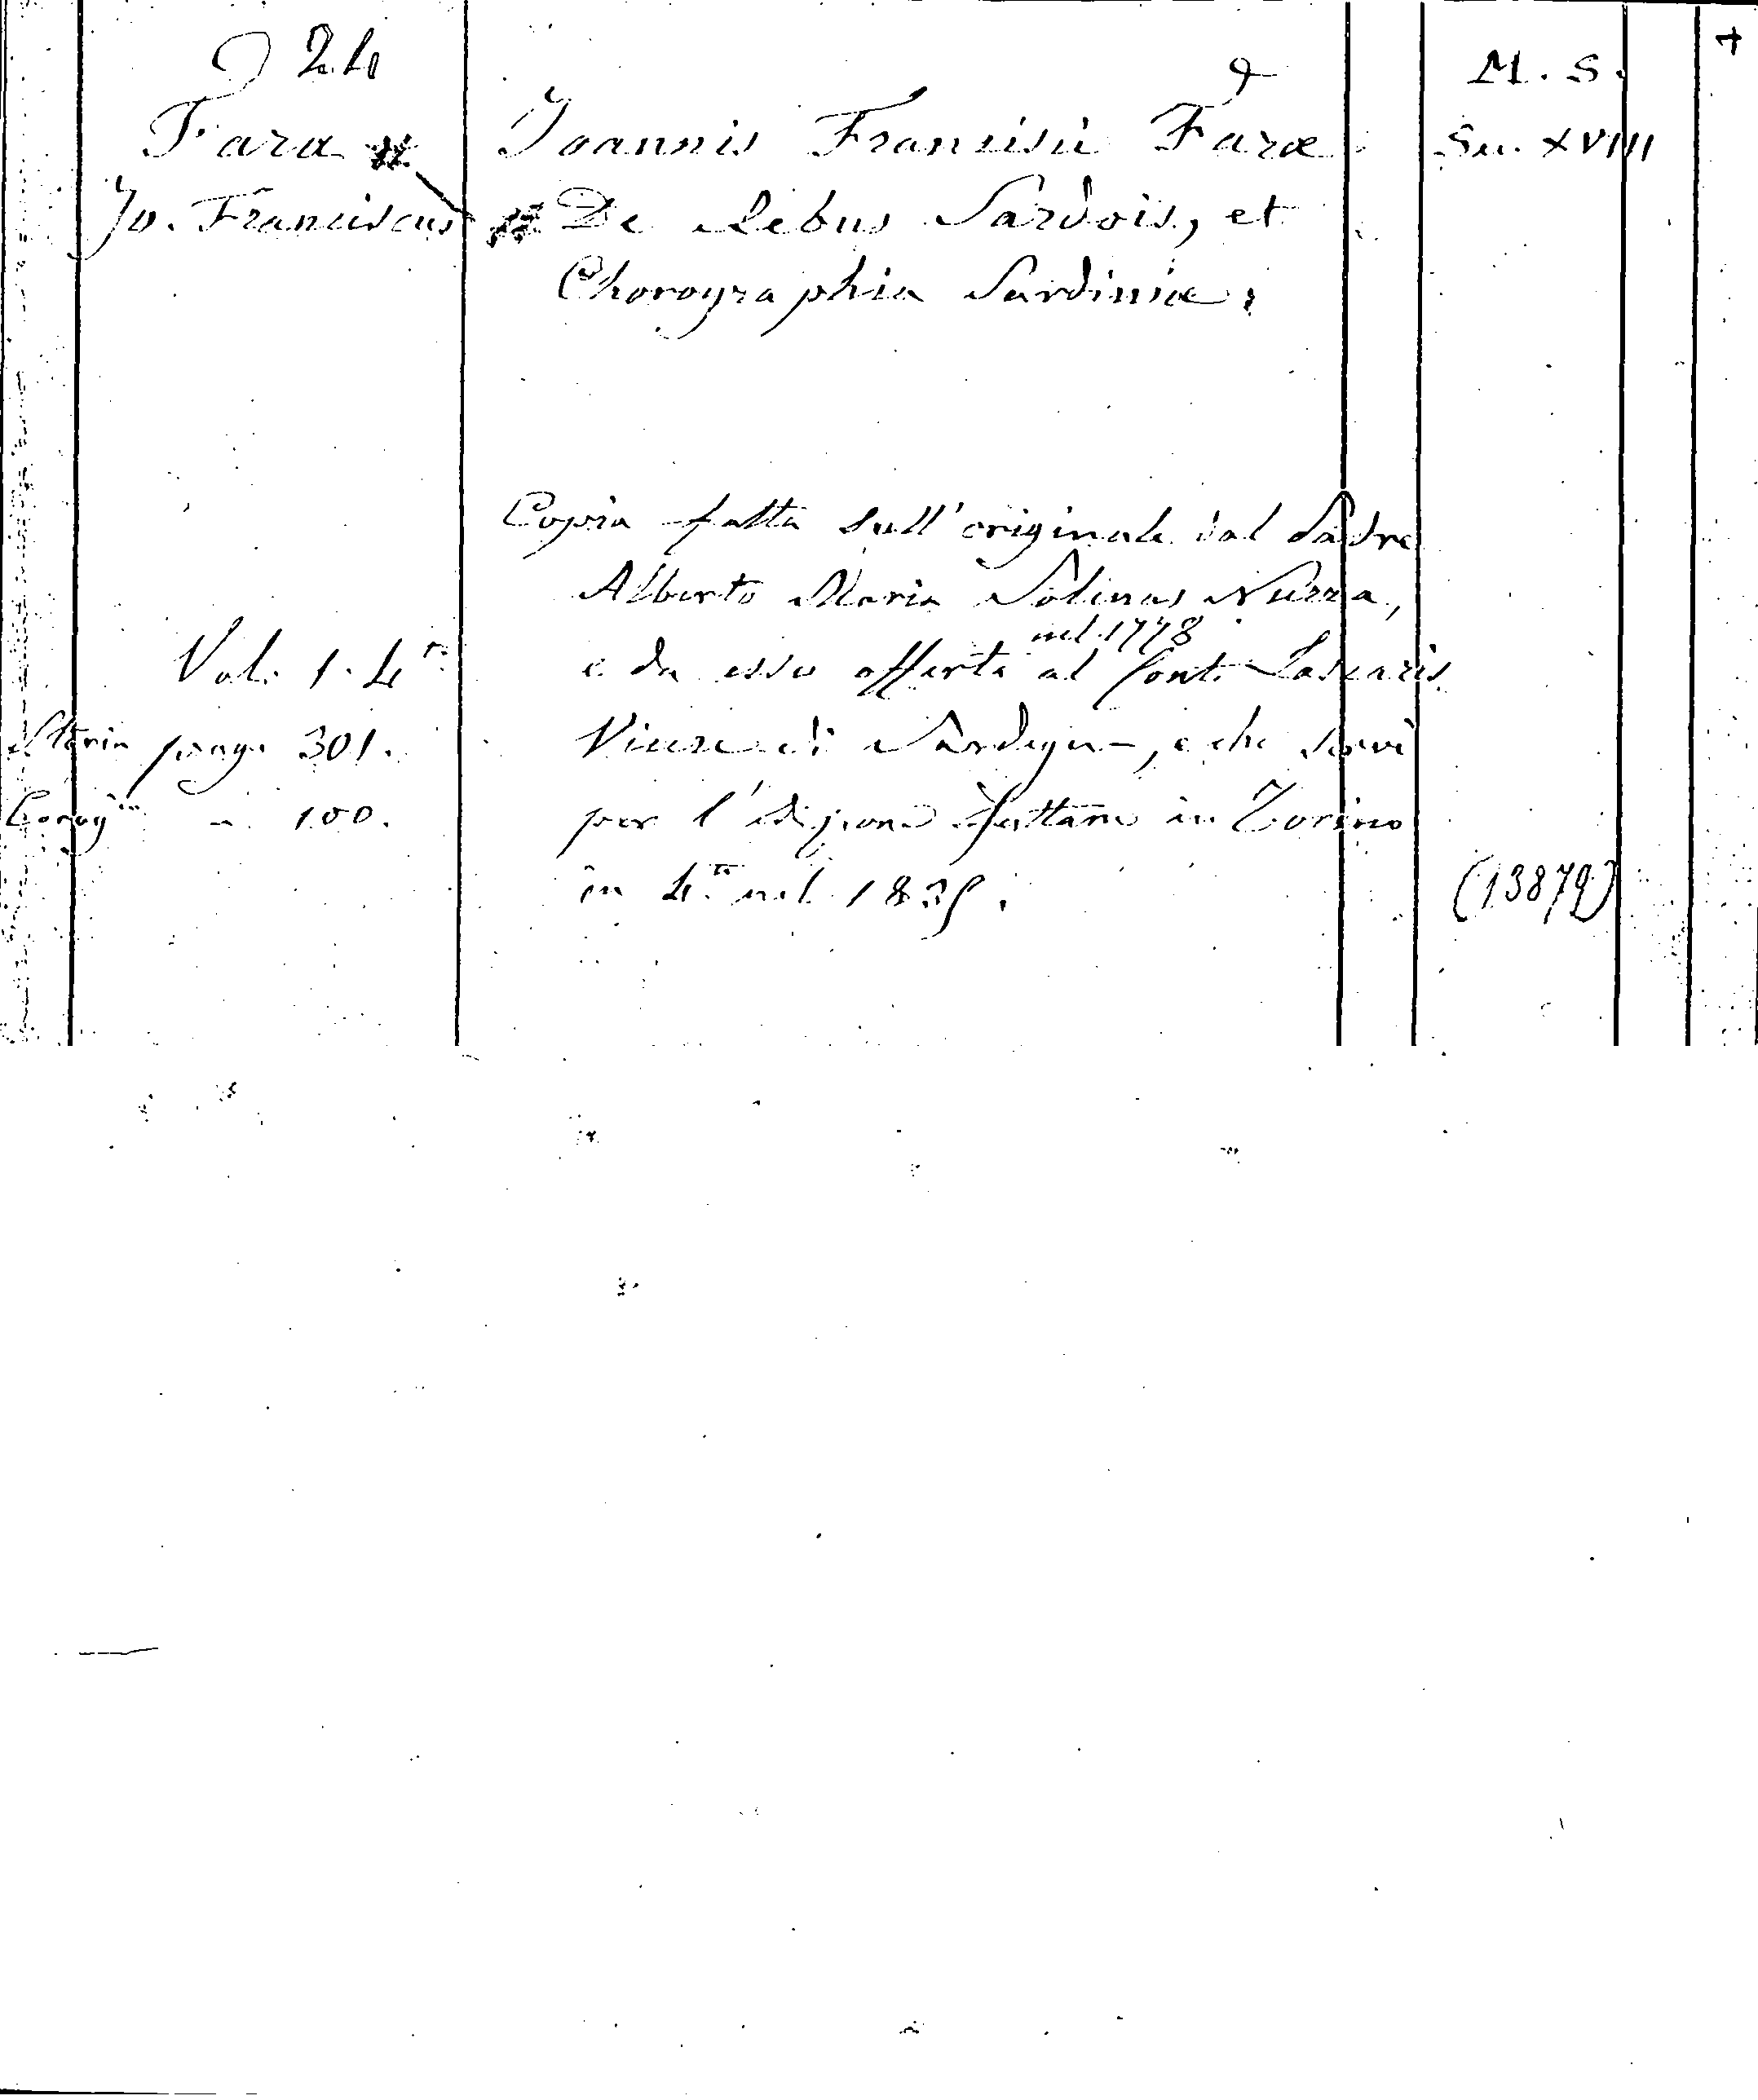 24
M. S.
Fara
Joannis Francisci Faræ
Sec. XVIII
Jo. Franciscus
De Rebus Sardois, et
Chorographia Sardiniæ.
Copia fatta sull'originale dal Padre
Alberto Maria Solinas Nurra,
nel 1778
Vol. 1. 4.to
e da esso offerta al Conte Lascaris
Storia pag. 301.
Vicerè di Sardegna, e che servì
Corog.ia " 100.
per l'edizione fattane in Torino
in 4.to nel 1835.
(13879)